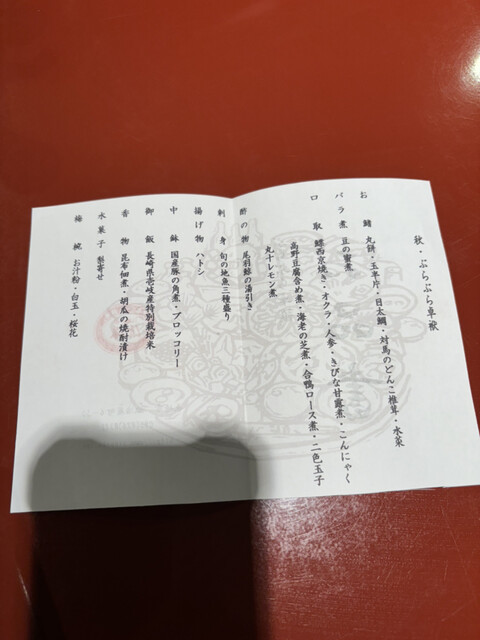 秋・ぶらぶら卓袱
お鰭 丸餅・玉半片・日太鯛・対馬のどんこ椎茸・水菜
バラ煮 豆の蜜煮
口取 鰈西京焼き・オクラ・人参・きびな甘露煮・こんにゃく
高野豆腐含め煮・海老の芝煮・合鴨ロース煮・二色玉子
丸十レモン煮
酢の物 尾羽鯨の湯引き
刺身 旬の地魚三種盛り
揚げ物 ハトシ
中鉢 国産豚の角煮・ブロッコリー
御飯 長崎県壱岐産特別栽培米
香物 昆布佃煮・胡瓜の焼酎漬け
水菓子 梨寄せ
梅椀 お汁粉・白玉・桜花